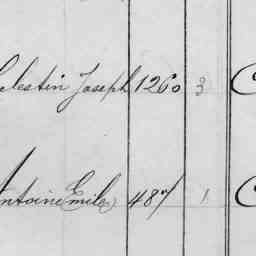 Celestin Joseph 1260 3
Antoine Emile 487 1